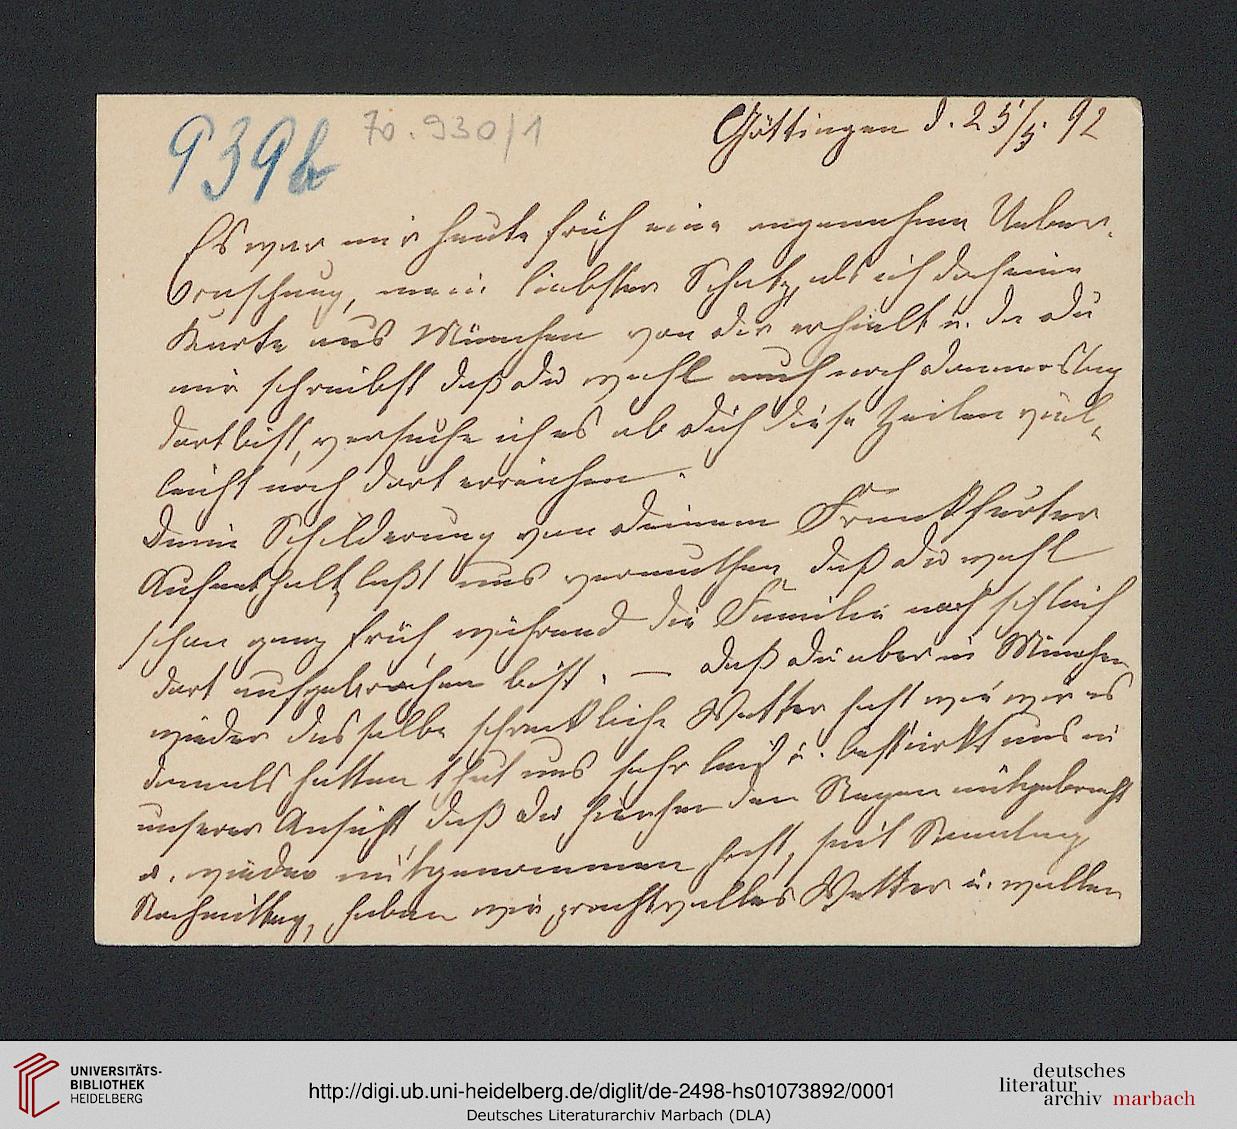 939b
70.930/1
Göttingen d. 25/5. 92
Es war mir heute früh eine angenehme Ueber-
raschung, mein liebster Schatz, als ich doch eine
Karte aus München von Dir erhielt u. da Du
mir schreibst daß Du wohl auch noch Donnerstag
dort bist, versuche ich es ob Dich diese Zeilen viel-
leicht noch dort erreichen.
Deine Schilderung von Deinem Frankfurter
Aufenthalt läßt uns vermuthen daß Du wohl
schon ganz früh, während die Familie noch schlief
dort aufgebrochen bist. — Daß Du aber in München
wieder dasselbe schreckliche Wetter hast wie wir es
damals hatten thut uns sehr leid u. bestärkt uns in
unserer Ansicht daß Du hierher den Regen mitgebracht
u. wieder mitgenommen hast, seit Sonntag
Nachmittag, haben wir prachtvolles Wetter u. wollen
UNIVERSITÄTS-
BIBLIOTHEK
HEIDELBERG
http://digi.ub.uni-heidelberg.de/diglit/de-2498-hs01073892/0001
Deutsches Literaturarchiv Marbach (DLA)
deutsches
literatur
archiv marbach